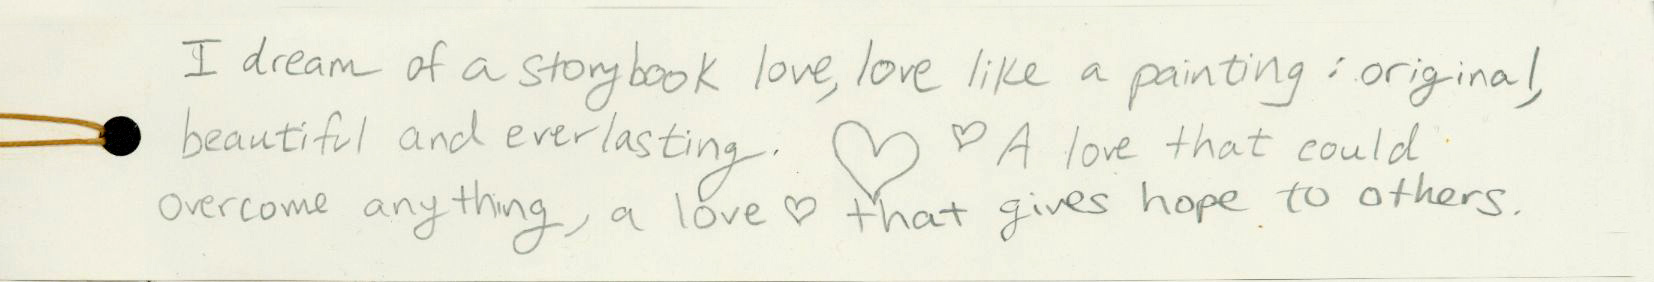 I dream of a storybook love, love like a painting: original,
beautiful and everlasting. ♡ ♡ A love that could
overcome anything, a love ♡ that gives hope to others.